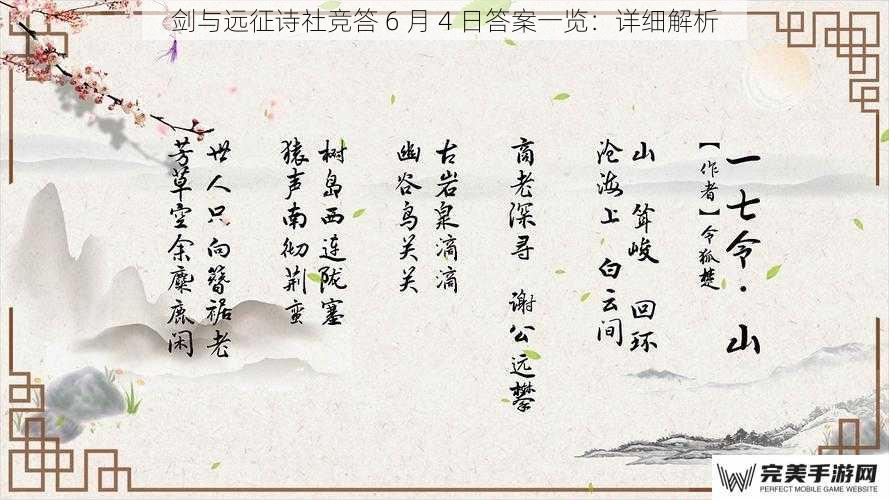 剑与远征诗社竞答 6 月 4 日答案一览：详细解析
一七令·山
【作者】令狐楚
山 耸峻 回环
沧海上 白云间
商老深寻 谢公远攀
古岩泉滴滴
幽谷鸟关关
树岛西连陇塞
猿声南彻荆蛮
世人只向簪裾老
芳草空余麋鹿闲
完美手游网
PERFECT MOBILE GAME WEBSITE